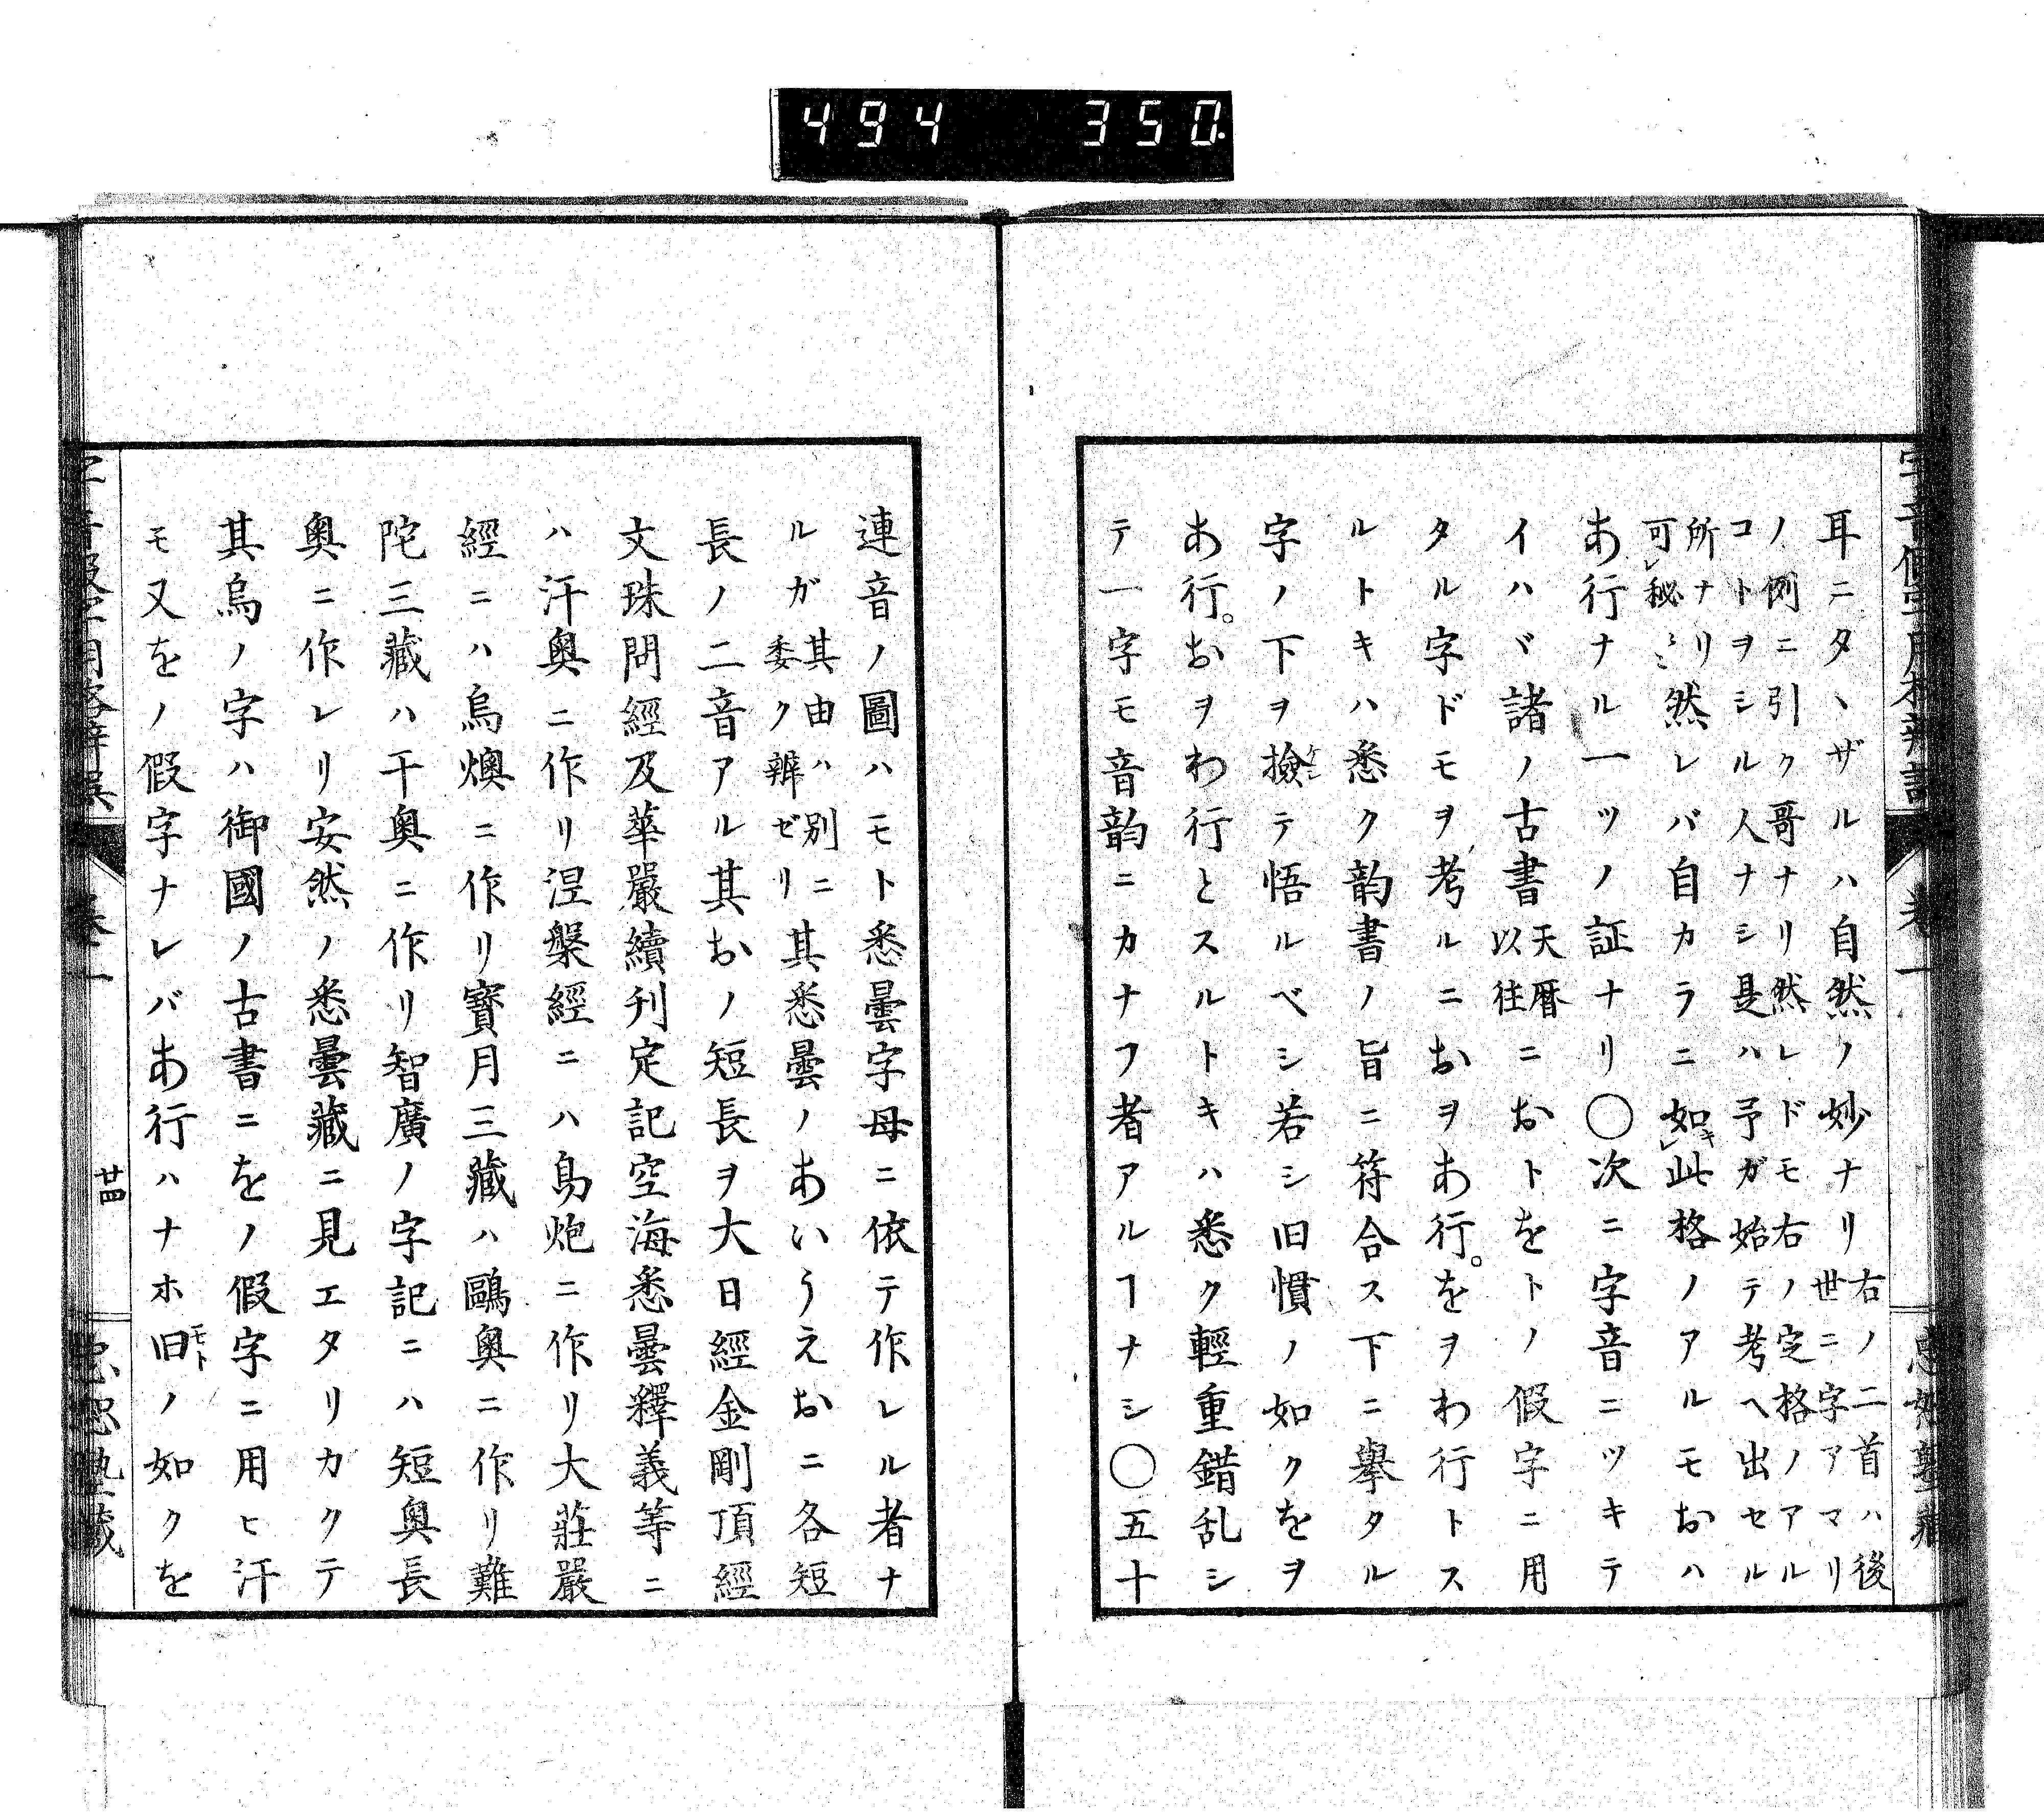 494 350
耳ニタヽザルハ自然ノ妙ナリ右ノ二首ハ後世ニ字アマリ
ノ例ニ引ク哥ナリ然レドモ右ノ定格ノアル
コトヲシル人ナシ是ハ予ガ始テ考ヘ出セル
所ナリ可レ秘ミミ然レバ自カラニ如キレ此格ノアルモおハ
あ行ナル一ツノ証ナリ〇次ニ字音ニツキテ
イハバ諸ノ古書天暦以往ニおトをトノ假字ニ用
タル字ドモヲ考ルニおヲあ行。をヲわ行トス
ルトキハ悉ク韵書ノ旨ニ符合ス下ニ擧タル
字ノ下ヲ撿テ悟ルベシ若シ旧慣ノ如クをヲ
あ行。おヲわ行とスルトキハ悉ク輕重錯乱シ
テ一字モ音韵ニカナフ者アルヿナシ〇五十
連音ノ圖ハモト悉曇字母ニ依テ作レル者ナ
ルガ其由ハ別ニ委ク辨ゼリ其悉曇ノあいうえおニ各短
長ノ二音アル其おノ短長ヲ大日經金剛頂經
文珠問經及華嚴續刋定記空海悉曇釋義等ニ
ハ汗奥ニ作リ涅槃經ニハ烏炮ニ作リ大莊嚴
經ニハ烏燠ニ作リ寶月三藏ハ鷗奥ニ作リ難
陀三藏ハ干奥ニ作リ智廣ノ字記ニハ短奥長
奥ニ作レリ安然ノ悉曇藏ニ見エタリカクテ
其烏ノ字ハ御國ノ古書ニをノ假字ニ用ヒ汗
モ又をノ假字ナレバあ行ハナホ旧モトノ如クを
卷一
廿四